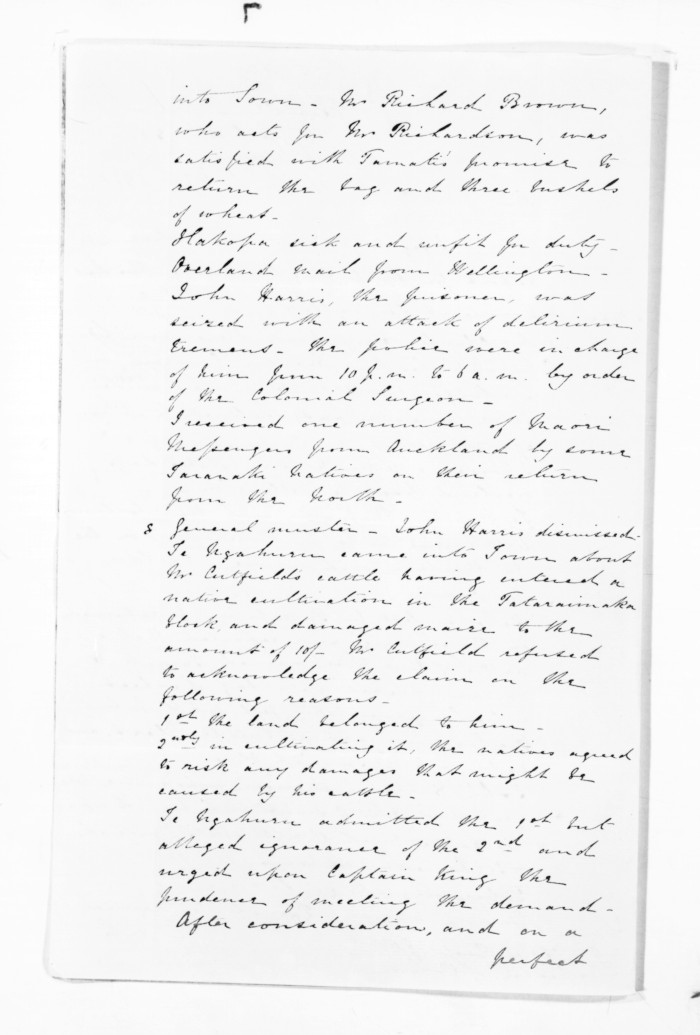 into Town - Mr Richard Brown,
who acts for Mr Richardson, was
satisfied with Tamati's promise to
return the bag and three bushels
of wheat -
Hakopa sick and unfit for duty -
Overland mail from Wellington -
John Harris, the prisoner, was
seized with an attack of delirium
tremens - The police were in charge
of him from 10 p.m. to 6 a.m. by order
of the Colonial Surgeon -
I received one number of Maori
Messengers from Auckland by some
Taranaki Natives on their return
from the North -
8 General muster - John Harris dismissed -
Te Ngahuru came into Town about
Mr Cutfields cattle having entered a
native cultivation in the Tataraimaka
block, and damaged maize to the
amount of 10/- Mr Cutfield refused
to acknowledge the claim on the
following reasons -
1st the land belonged to him -
2ndly in cultivating it, the natives agreed
to risk any damages that might be
caused by his cattle -
Te Ngahuru admitted the 1st but
alleged ignorance of the 2nd and
urged upon Captain King the
prudence of meeting the demand -
After consideration, and on a
perfect